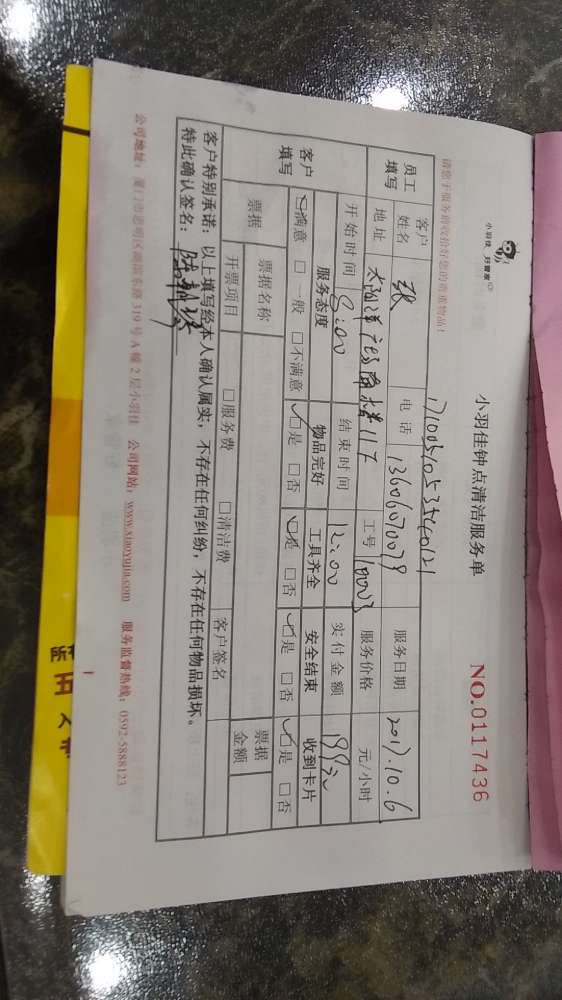 小羽佳 好管家
小羽佳钟点清洁服务单
NO.0117436
请您于服务前收拾好您的贵重物品!
员工填写 客户姓名 张 电话 服务日期 2017.10.6
地址 太平洋广场南楼11F 工号 10003 服务价格 元/小时
客户填写 开始时间 8:00 结束时间 12:00 实付金额
服务态度 物品完好 工具齐全 安全结束 收到卡片
☑满意 □一般 □不满意 ☑是 □否 ☑是 □否 ☑是 □否 ☑是 □否
票据 票据名称 票据金额
开票项目 □服务费 □清洁费 客户签名
客户特别承诺:以上填写经本人确认属实,不存在任何纠纷,不存在任何物品损坏。
特此确认签名:
公司地址:厦门市思明区湖滨东路319号A幢2层小羽佳 公司网站:www.xiaoyujia.com 服务监督热线:0592-5888123
所有
五
入